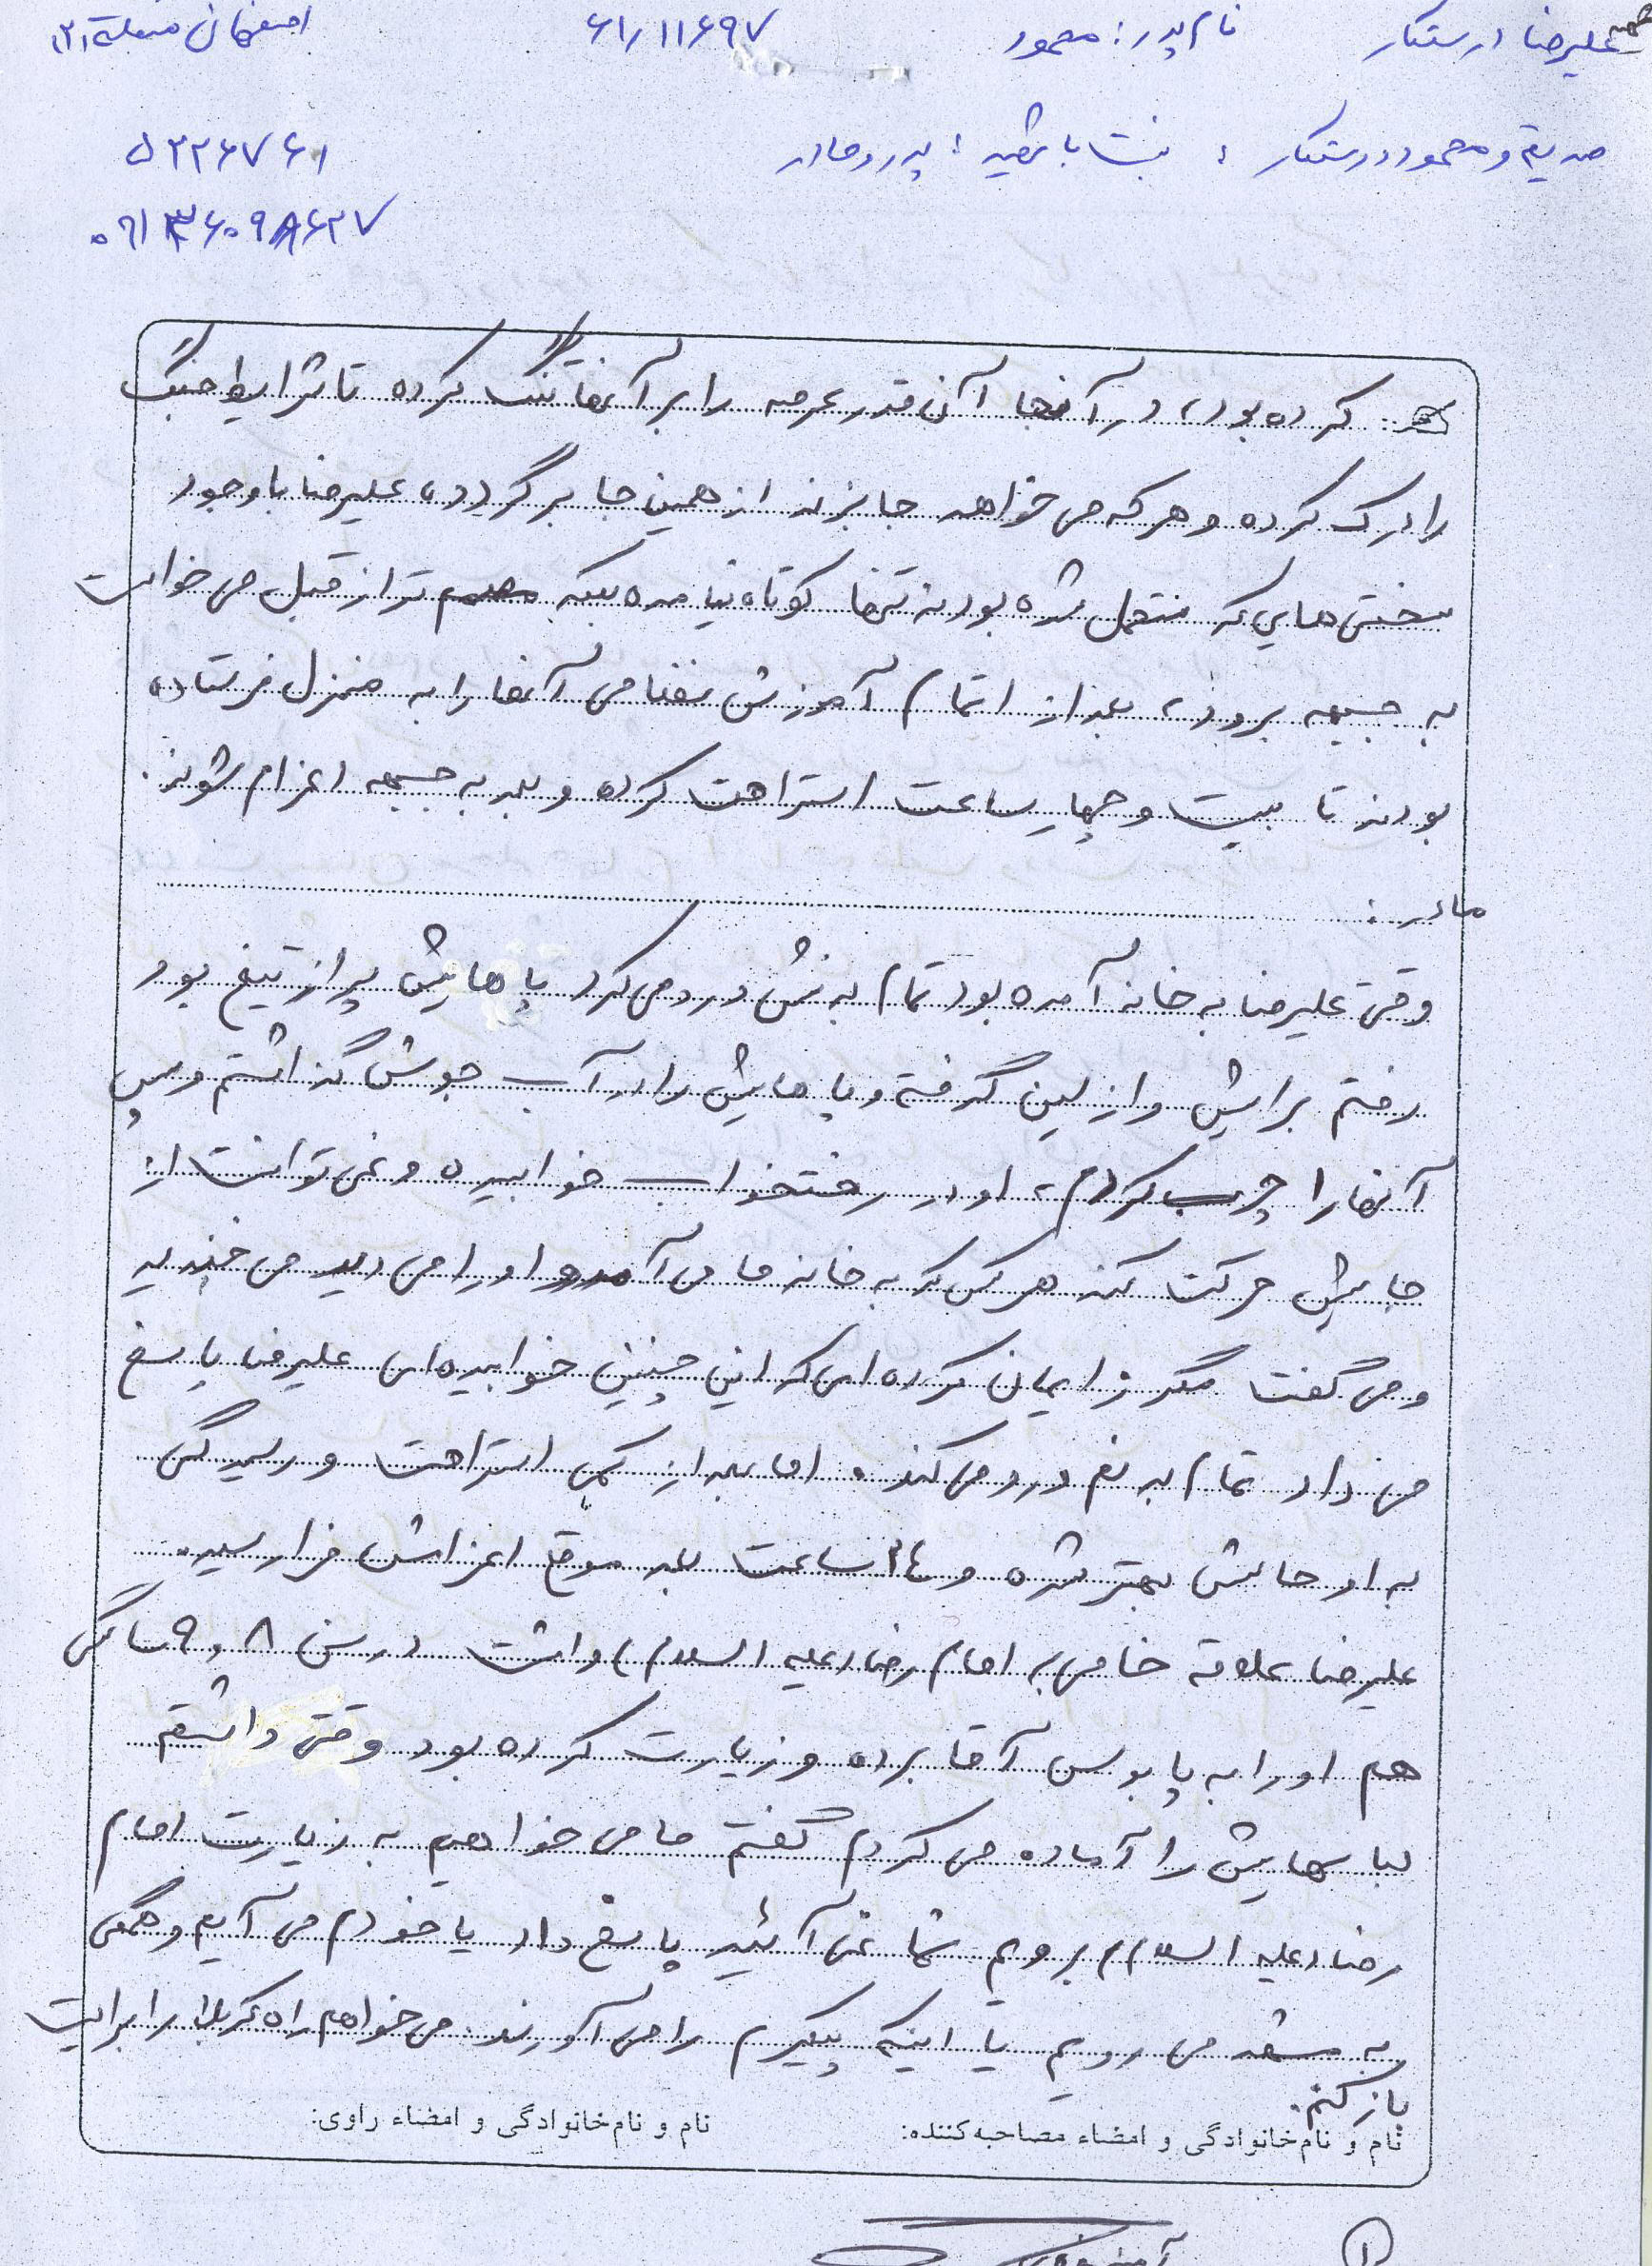 شهید علیرضا درستکار نام پدر: محمود ۶۱/۱۱۶۹۷ اصفهان منطقه ۳۱
صدیقه و محمود درستکار ؛ نسبت با شهید: پدر و مادر
۵۲۲۶۷۶۱
۰۹۱۳۶۰۹۸۶۲۷
کرده بود، در آنجا آن قدر عرصه را بر آنها تنگ کرده تا شرایط جنگ
را درک کرده و هر که می خواهد جا بزند از همین جا برگردد، علیرضا با وجود
سختی هایی که متحمل شده بود نه تنها کوتاه نیامده بلکه مصمم تر از قبل می خواست
به جبهه برود، بعد از اتمام آموزش نظامی آنها را به منزل فرستاده
بودند تا بیست و چهار ساعت استراحت کرده و بعد به جبهه اعزام شوند.
مادر:
وقتی علیرضا به خانه آمده بود تمام بدنش درد می کرد پاهایش پر از تیغ بود
رفتم برایش وازلین گرفته و پاهایش را در آب جوش گذاشتم و سپس
آنها را چرب کردم، او در رختخواب خوابیده و نمی توانست از
جایش حرکت کند هر کس که به خانه ما می آمد و او را می دید می خندید
و می گفت مگر زایمان کرده ای که این چنین خوابیده ای علیرضا پاسخ
می داد تمام بدنم درد می کند. اما بعد از کمی استراحت و رسیدگی
به او حالش بهتر شده و ۲۴ ساعت بعد موقع اعزامش فرا رسید.
علیرضا علاقه خاصی به امام رضا (علیه السلام) داشت در سن ۸ و ۹ سالگی
هم او را به پابوس آقا برده و زیارت کرده بود وقتی داشتم
لباسهایش را آماده می کردم گفتم ما می خواهیم به زیارت امام
رضا (علیه السلام) برویم شما نمی آئید پاسخ داد یا خودم می آیم و همگی
به مشهد می رویم یا اینکه پیکرم را می آورند. می خواهم راه کربلا را برایت
باز کنم.
نام و نام‌خانوادگی و امضاء مصاحبه‌کننده: نام و نام‌خانوادگی و امضاء راوی:
۱